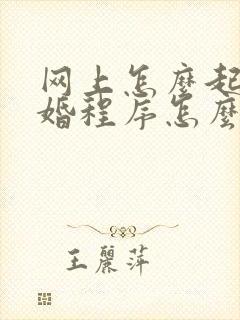 网上怎麼起
婚程序怎麼
王麗萍